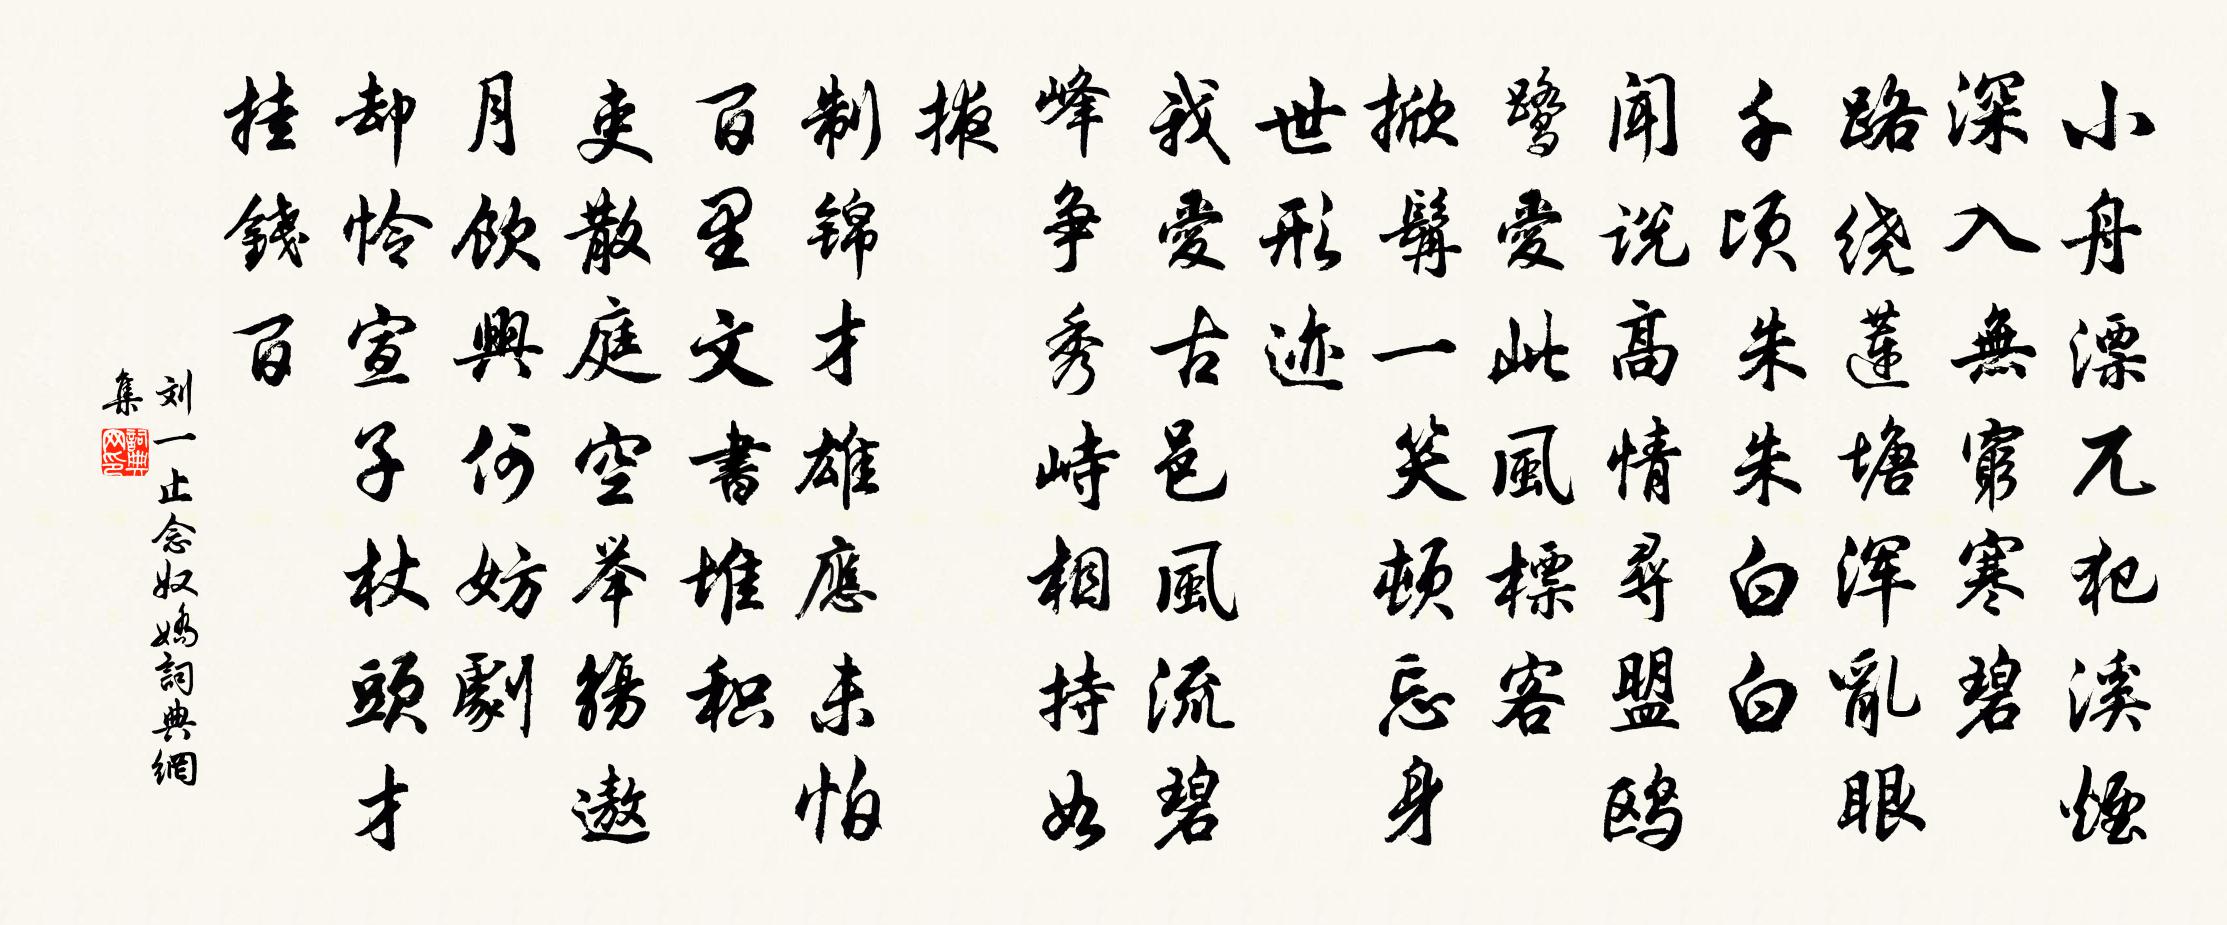 小舟漂兀犯溪煙
深入無窮寒碧
路绕蓮塘浑亂眼
千顷朱朱白白
闻说高情尋盟鸥
鹭愛此風標客
掀髯一笑顿忘身
世形迹
我愛古邑風流碧
峰争秀峙相持如
掖
制锦才雄應未怕
百里文書堆积
吏散庭空举觴遨
月飲興何妨劇
却怜宣子杖頭才
挂錢百
刘一止念奴嬌詞典網
集
詞典
网印